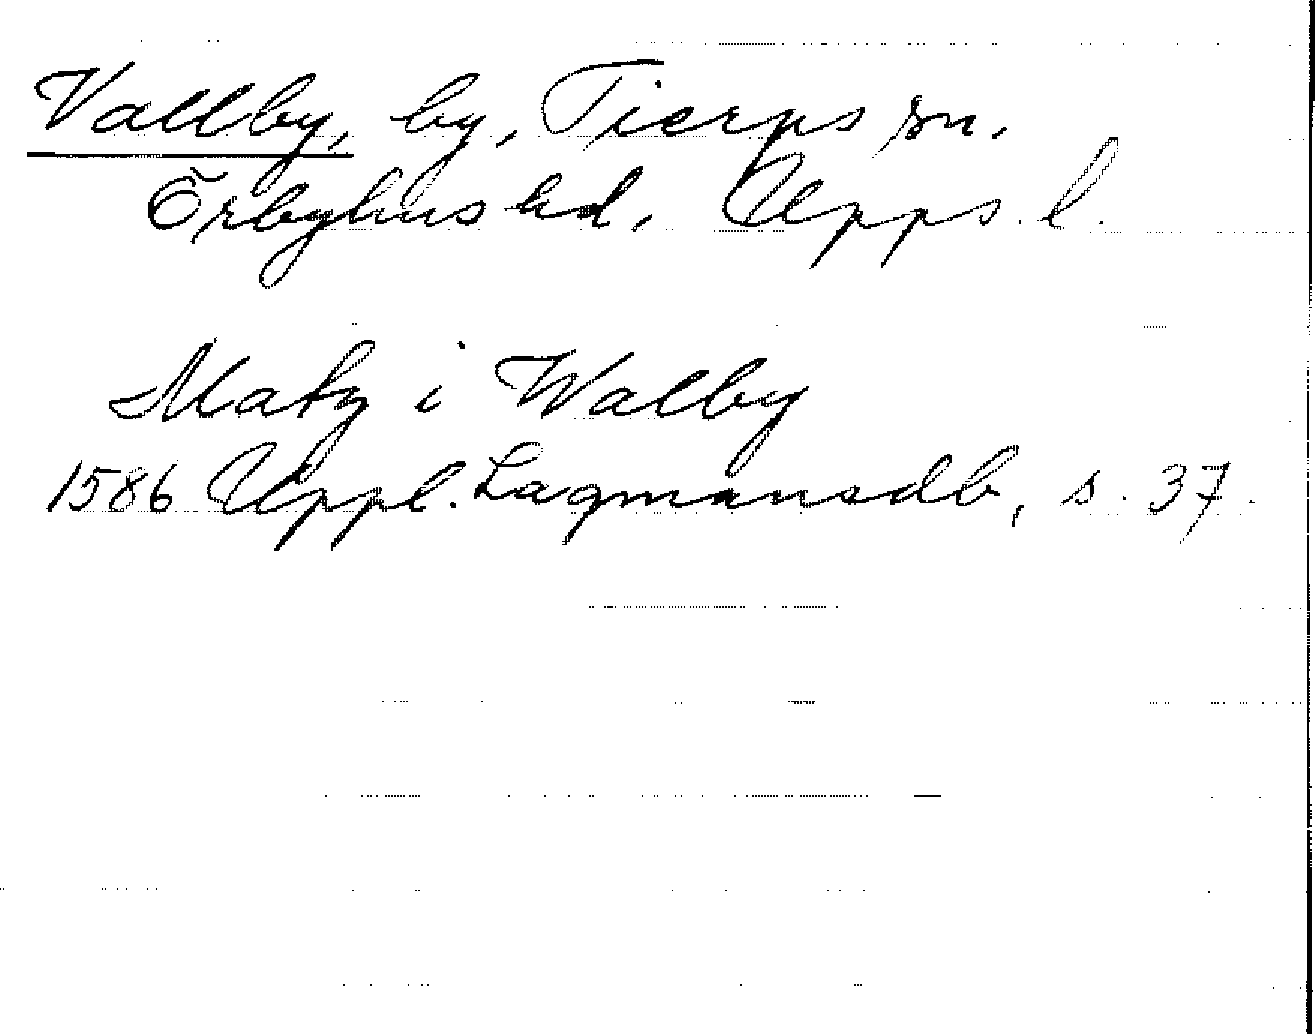 Vallby, by, Tierps sn.
Örbyhus hd, Upps. l.
Matz i Walby
1586 Uppl. Lagmansdb, s. 37.